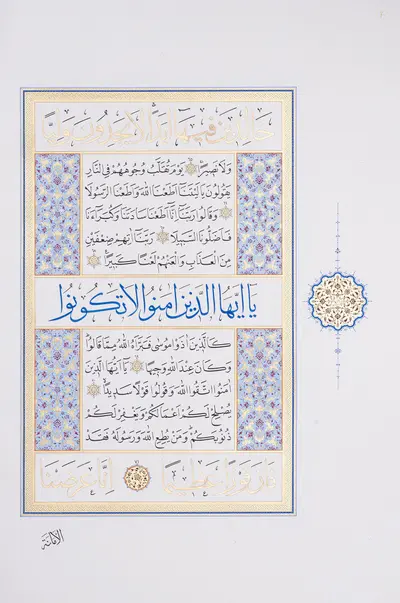 خَالِدِينَ فِيهَا اَبَدًا لَا يَجِدُونَ وَلِيًّا
وَلَا نَصِيرًا يَوْمَ تُقَلَّبُ وُجُوهُهُمْ فِي النَّارِ
يَقُولُونَ يَا لَيْتَنَا اَطَعْنَا اللهَ وَاَطَعْنَا الرَّسُولَا
وَقَالُوا رَبَّنَا اِنَّا اَطَعْنَا سَادَتَنَا وَكُبَرَاءَنَا
فَاَضَلُّونَا السَّبِيلَا رَبَّنَا اٰتِهِمْ ضِعْفَيْنِ
مِنَ الْعَذَابِ وَالْعَنْهُمْ لَعْنًا كَبِيرًا
يَا اَيُّهَا الَّذِينَ اٰمَنُوا لَا تَكُونُوا
كَالَّذِينَ اٰذَوْا مُوسٰى فَبَرَّاَهُ اللهُ مِمَّا قَالُوا
وَكَانَ عِنْدَ اللهِ وَجِيهًا يَا اَيُّهَا الَّذِينَ
اٰمَنُوا اتَّقُوا اللهَ وَقُولُوا قَوْلًا سَدِيدًا
يُصْلِحْ لَكُمْ اَعْمَالَكُمْ وَيَغْفِرْ لَكُمْ
ذُنُوبَكُمْ وَمَنْ يُطِعِ اللهَ وَرَسُولَهُ فَقَدْ
فَازَ فَوْزًا عَظِيمًا اِنَّا عَرَضْنَا
الْاَمَانَةَ